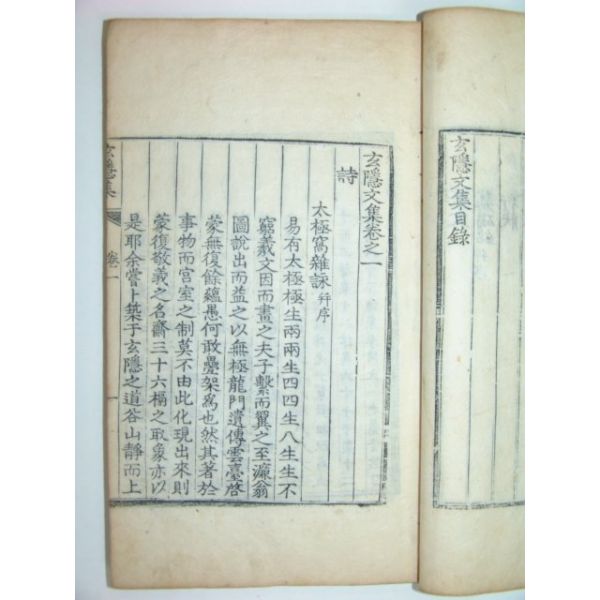 玄隱文集目錄
玄隱文集卷之一
詩
太極窩雜詠 幷序
易有太極極生兩兩生四四生八生生不
窮羲文因而畫之夫子繫而翼之至濂翁
圖說出而益之以無極龍門遺傳雲臺啓
蒙無復餘蘊愚何敢疊架爲也然其著於
事物而宮室之制莫不由此化現出來則
蒙復敬義之名齋三十六榻之取象亦以
是耶余嘗卜築于玄隱之道谷山靜而上
玄隱集
卷一
一